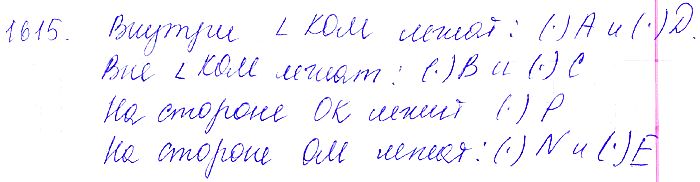 1615. Внутри ∠ КОМ лежат: (·) А и (·) D.
Вне ∠ КОМ лежат: (·) В и (·) С
На стороне ОК лежит (·) Р
На стороне ОМ лежат: (·) N и (·) E